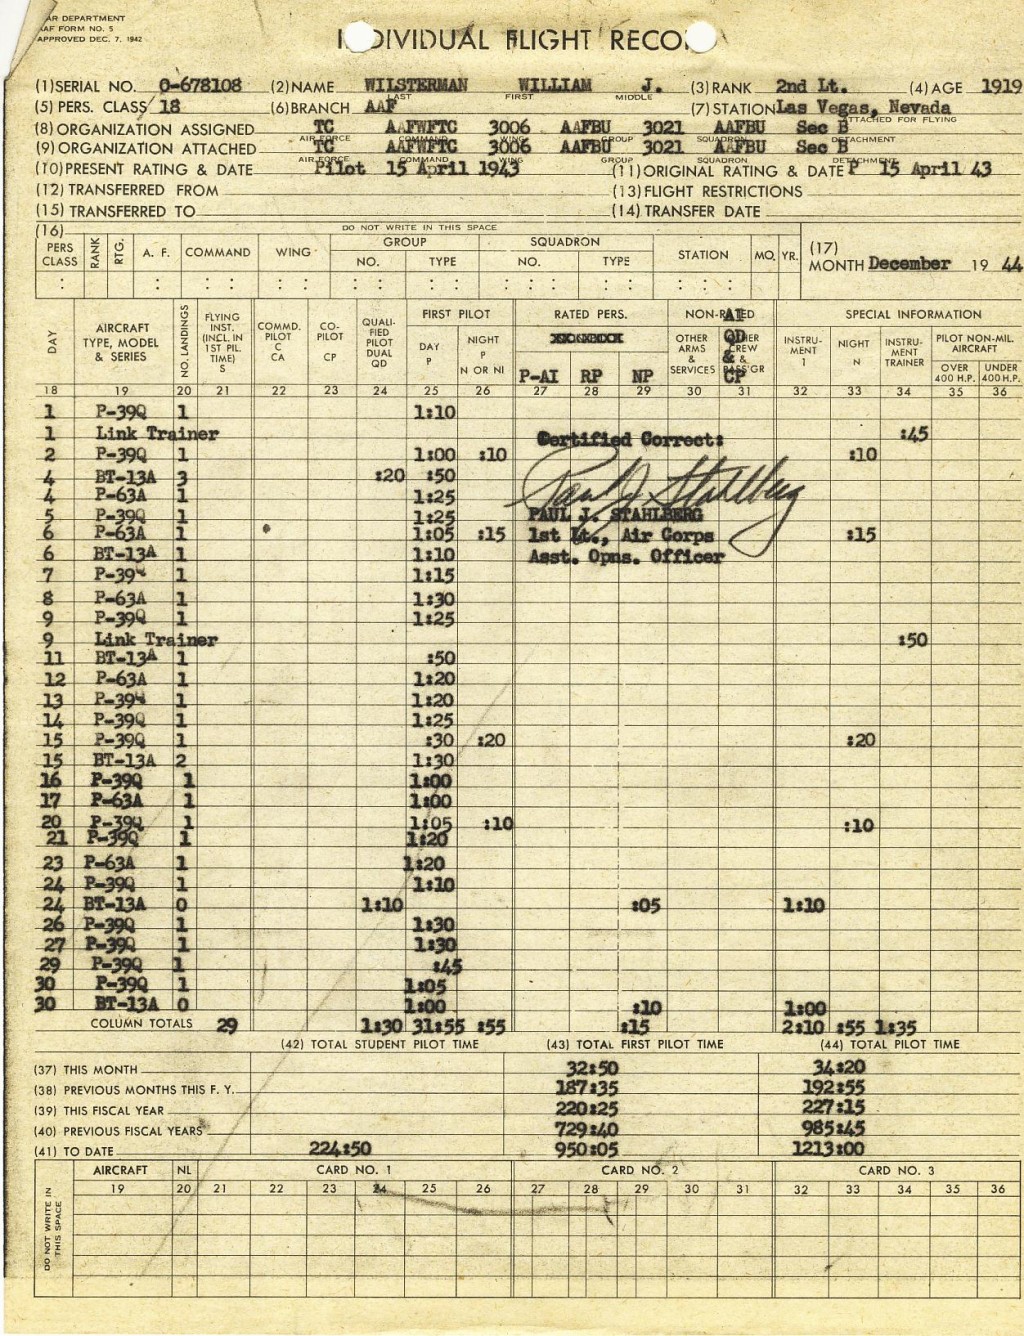 AR DEPARTMENT
AAF FORM NO. 5
APPROVED DEC. 7, 1942
INDIVIDUAL FLIGHT RECO
(1) SERIAL NO. 0-678108 (2) NAME WILSTERMAN WILLIAM J. (3) RANK 2nd Lt. (4) AGE 1919
LAST FIRST MIDDLE
(5) PERS. CLASS 18 (6) BRANCH AAF (7) STATION Las Vegas, Nevada
ATTACHED FOR FLYING
(8) ORGANIZATION ASSIGNED TC AAFWFTC 3006 AAFBU 3021 AAFBU Sec B
AIR FORCE COMMAND WING GROUP SQUADRON DETACHMENT
(9) ORGANIZATION ATTACHED TC AAFWFTC 3006 AAFBU 3021 AAFBU Sec B
AIR FORCE COMMAND WING GROUP SQUADRON DETACHMENT
(10) PRESENT RATING & DATE Pilot 15 April 1943 (11) ORIGINAL RATING & DATE P 15 April 43
(12) TRANSFERRED FROM (13) FLIGHT RESTRICTIONS
(15) TRANSFERRED TO (14) TRANSFER DATE
(16) DO NOT WRITE IN THIS SPACE
PERS CLASS RANK RTG. A. F. COMMAND WING GROUP NO. TYPE SQUADRON NO. TYPE STATION MO. YR. (17) MONTH December 19 44
DAY AIRCRAFT TYPE, MODEL & SERIES NO. LANDINGS FLYING INST. (INCL. IN 1ST PIL. TIME) S COMMD. PILOT C CA CO-PILOT CP QUALI-FIED PILOT DUAL QD FIRST PILOT DAY P NIGHT P N OR NI RATED PERS. P-AI RP NP NON-RATED AI QD & CP OTHER ARMS & SERVICES OTHER CREW & PASS'GR SPECIAL INFORMATION INSTRU-MENT I NIGHT N INSTRU-MENT TRAINER PILOT NON-MIL. AIRCRAFT OVER 400 H.P. UNDER 400 H.P.
18 19 20 21 22 23 24 25 26 27 28 29 30 31 32 33 34 35 36
1 P-39Q 1 1:10
1 Link Trainer :45
Certified Correct:
2 P-39Q 1 1:00 :10 :10
4 BT-13A 3 :20 :50
4 P-63A 1 1:25
Paul J Stahlberg
5 P-39Q 1 1:25 PAUL J. STAHLBERG
6 P-63A 1 1:05 :15 1st Lt., Air Corps :15
6 BT-13A 1 1:10 Asst. Opns. Officer
7 P-39 1 1:15
8 P-63A 1 1:30
9 P-39Q 1 1:25
9 Link Trainer :50
11 BT-13A 1 :50
12 P-63A 1 1:20
13 P-39 1 1:20
14 P-39Q 1 1:25
15 P-39Q 1 :30 :20 :20
15 BT-13A 2 1:30
16 P-39Q 1 1:00
17 P-63A 1 1:00
20 P-39Q 1 1:05 :10 :10
21 P-39Q 1 1:20
23 P-63A 1 1:20
24 P-39Q 1 1:10
24 BT-13A 0 1:10 :05 1:10
26 P-39Q 1 1:30
27 P-39Q 1 1:30
29 P-39Q 1 :45
30 P-39Q 1 1:05
30 BT-13A 0 1:00 :10 1:00
COLUMN TOTALS 29 1:30 31:55 :55 :15 2:10 :55 1:35
(42) TOTAL STUDENT PILOT TIME (43) TOTAL FIRST PILOT TIME (44) TOTAL PILOT TIME
(37) THIS MONTH 32:50 34:20
(38) PREVIOUS MONTHS THIS F. Y. 187:35 192:55
(39) THIS FISCAL YEAR 220:25 227:15
(40) PREVIOUS FISCAL YEARS 729:40 985:45
(41) TO DATE 224:50 950:05 1213:00
AIRCRAFT NL CARD NO. 1 CARD NO. 2 CARD NO. 3
19 20 21 22 23 24 25 26 27 28 29 30 31 32 33 34 35 36
DO NOT WRITE IN THIS SPACE